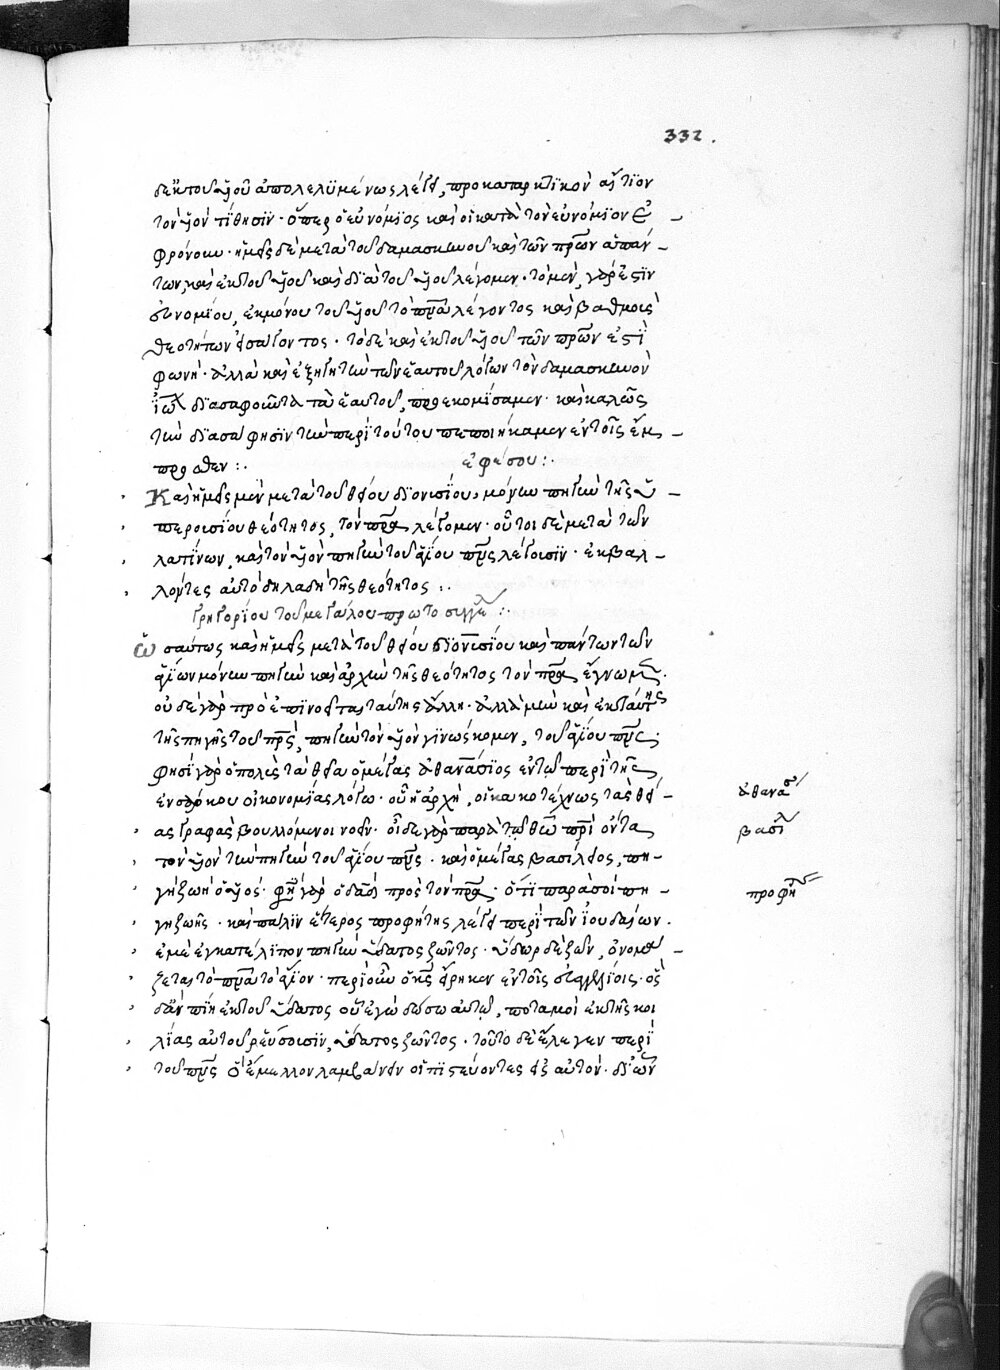 332.
δεἐκτοῦ υἱοῦ ἀπολελυμένως λέγει, προκαταρκτικὸν αἴτιον
τὸν υἱὸν τίθησιν· ὅπερ ὁ εὐνόμιος καὶ οἱ κατὰ τὸν εὐνόμιον ἐ
φρόνουν· ἡμεῖς δὲ μετὰ τοῦ δαμασκηνοῦ καὶ τῶν πρων ἁπάν
των, καὶ ἐκ τοῦ υἱοῦ καὶ διὰ τοῦ υἱοῦ λέγομεν· τὸ μὲν γάρ ἐστιν
εὐνομίου, ἐκ μόνου τοῦ υἱοῦ τὸ πνα λέγοντος καὶ βαθμοὺς
θεοτήτων εἰσάγοντος· τὸ δὲ καὶ ἐκ τοῦ υἱοῦ τῶν πρων ἐστὶ
φωνή· ἀλλὰ καὶ ἐξηγητὴν τῶν ἑαυτοῦ λόγων τὸν δαμασκηνὸν
ἰω διασαφοῦντα τὰ ἑαυτοῦ, προεκομίσαμεν· καὶ καλῶς
τὴν διασάφησιν τὴν περὶ τούτου πεποιήκαμεν ἐν τοῖς ἔμ
προσθεν :.
ἐφέσου :.
Καὶ ἡμεῖς μὲν μετὰ τοῦ θείου διονυσίου, μόνην πηγὴν τῆς ὑ
περουσίου θεότητος, τὸν πρα λέγομεν· οὗτοι δὲ μετὰ τῶν
λατίνων, καὶ τὸν υἱὸν πηγὴν τοῦ ἁγίου πνς λέγουσιν· ἐκβαλ
λόντες αὐτὸ δηλαδὴ τῆς θεότητος :.
Γρηγορίου τοῦ μεγάλου πρωτοσυγγέλ :.
ὡσαύτως καὶ ἡμεῖς μετὰ τοῦ θείου διονυσίου καὶ πάντων τῶν
ἁγίων μόνην πηγὴν καὶ ἀρχὴν τῆς θεότητος τὸν πρα ἔγνωμεν·
οὐδὲ γὰρ πρὸ ἐπινοεῖται ταύτης ἄλλη· ἀλλὰ μὴν καὶ ἐκ ταύτης
τῆς πηγῆς τοῦ πρς, πηγὴν τὸν υἱὸν γινώσκομεν, τοῦ ἁγίου πνς·
φησὶ γὰρ ὁ πολὺς τὰ θεῖα ὁ μέγας ἀθανάσιος ἐν τῷ περὶ τῆς
ἐνσάρκου οἰκονομίας λόγω· οὗ ἡ ἀρχὴ, οἱ κακοτέχνως τὰς θεί
ας γραφὰς βουλόμενοι νοεῖν· οἶδε γὰρ παρὰ τῶ θω πρὶ ὄντα
τὸν υἱὸν τὴν πηγὴν τοῦ ἁγίου πνς· καὶ ὁ μέγας βασίλειος, πη
γὴ ζωῆ ὁ υἱός· φησὶ γὰρ ὁ δαδ πρὸς τὸν πρα· ὅτι παρὰ σοὶ πη
γὴ ζωῆς· καὶ πάλιν ἕτερος προφήτης λέγει περὶ τῶν ἰουδαίων·
ἐμὲ ἐγκατέλιπον πηγὴν ὕδατος ζῶντος· ὕδωρ δὲ ζῶν, ὀνομά
ζεται τὸ πνα τὸ ἅγιον· περὶ οὗ ὁ κς εἴρηκεν ἐν τοῖς εὐαγγελίοις· ὃς
δ' ἂν πίη ἐκ τοῦ ὕδατος οὗ ἐγὼ δώσω αὐτῶ, ποταμοὶ ἐκ τῆς κοι
λίας αὐτοῦ ῥεύσουσιν, ὕδατος ζῶντος· τοῦτο δὲ ἔλεγεν περὶ
τοῦ πνς οὗ ἔμελλον λαμβάνειν οἱ πιστεύοντες εἰς αὐτόν· δι' ὧν
ἀθανασ
βασιλ
προφητ